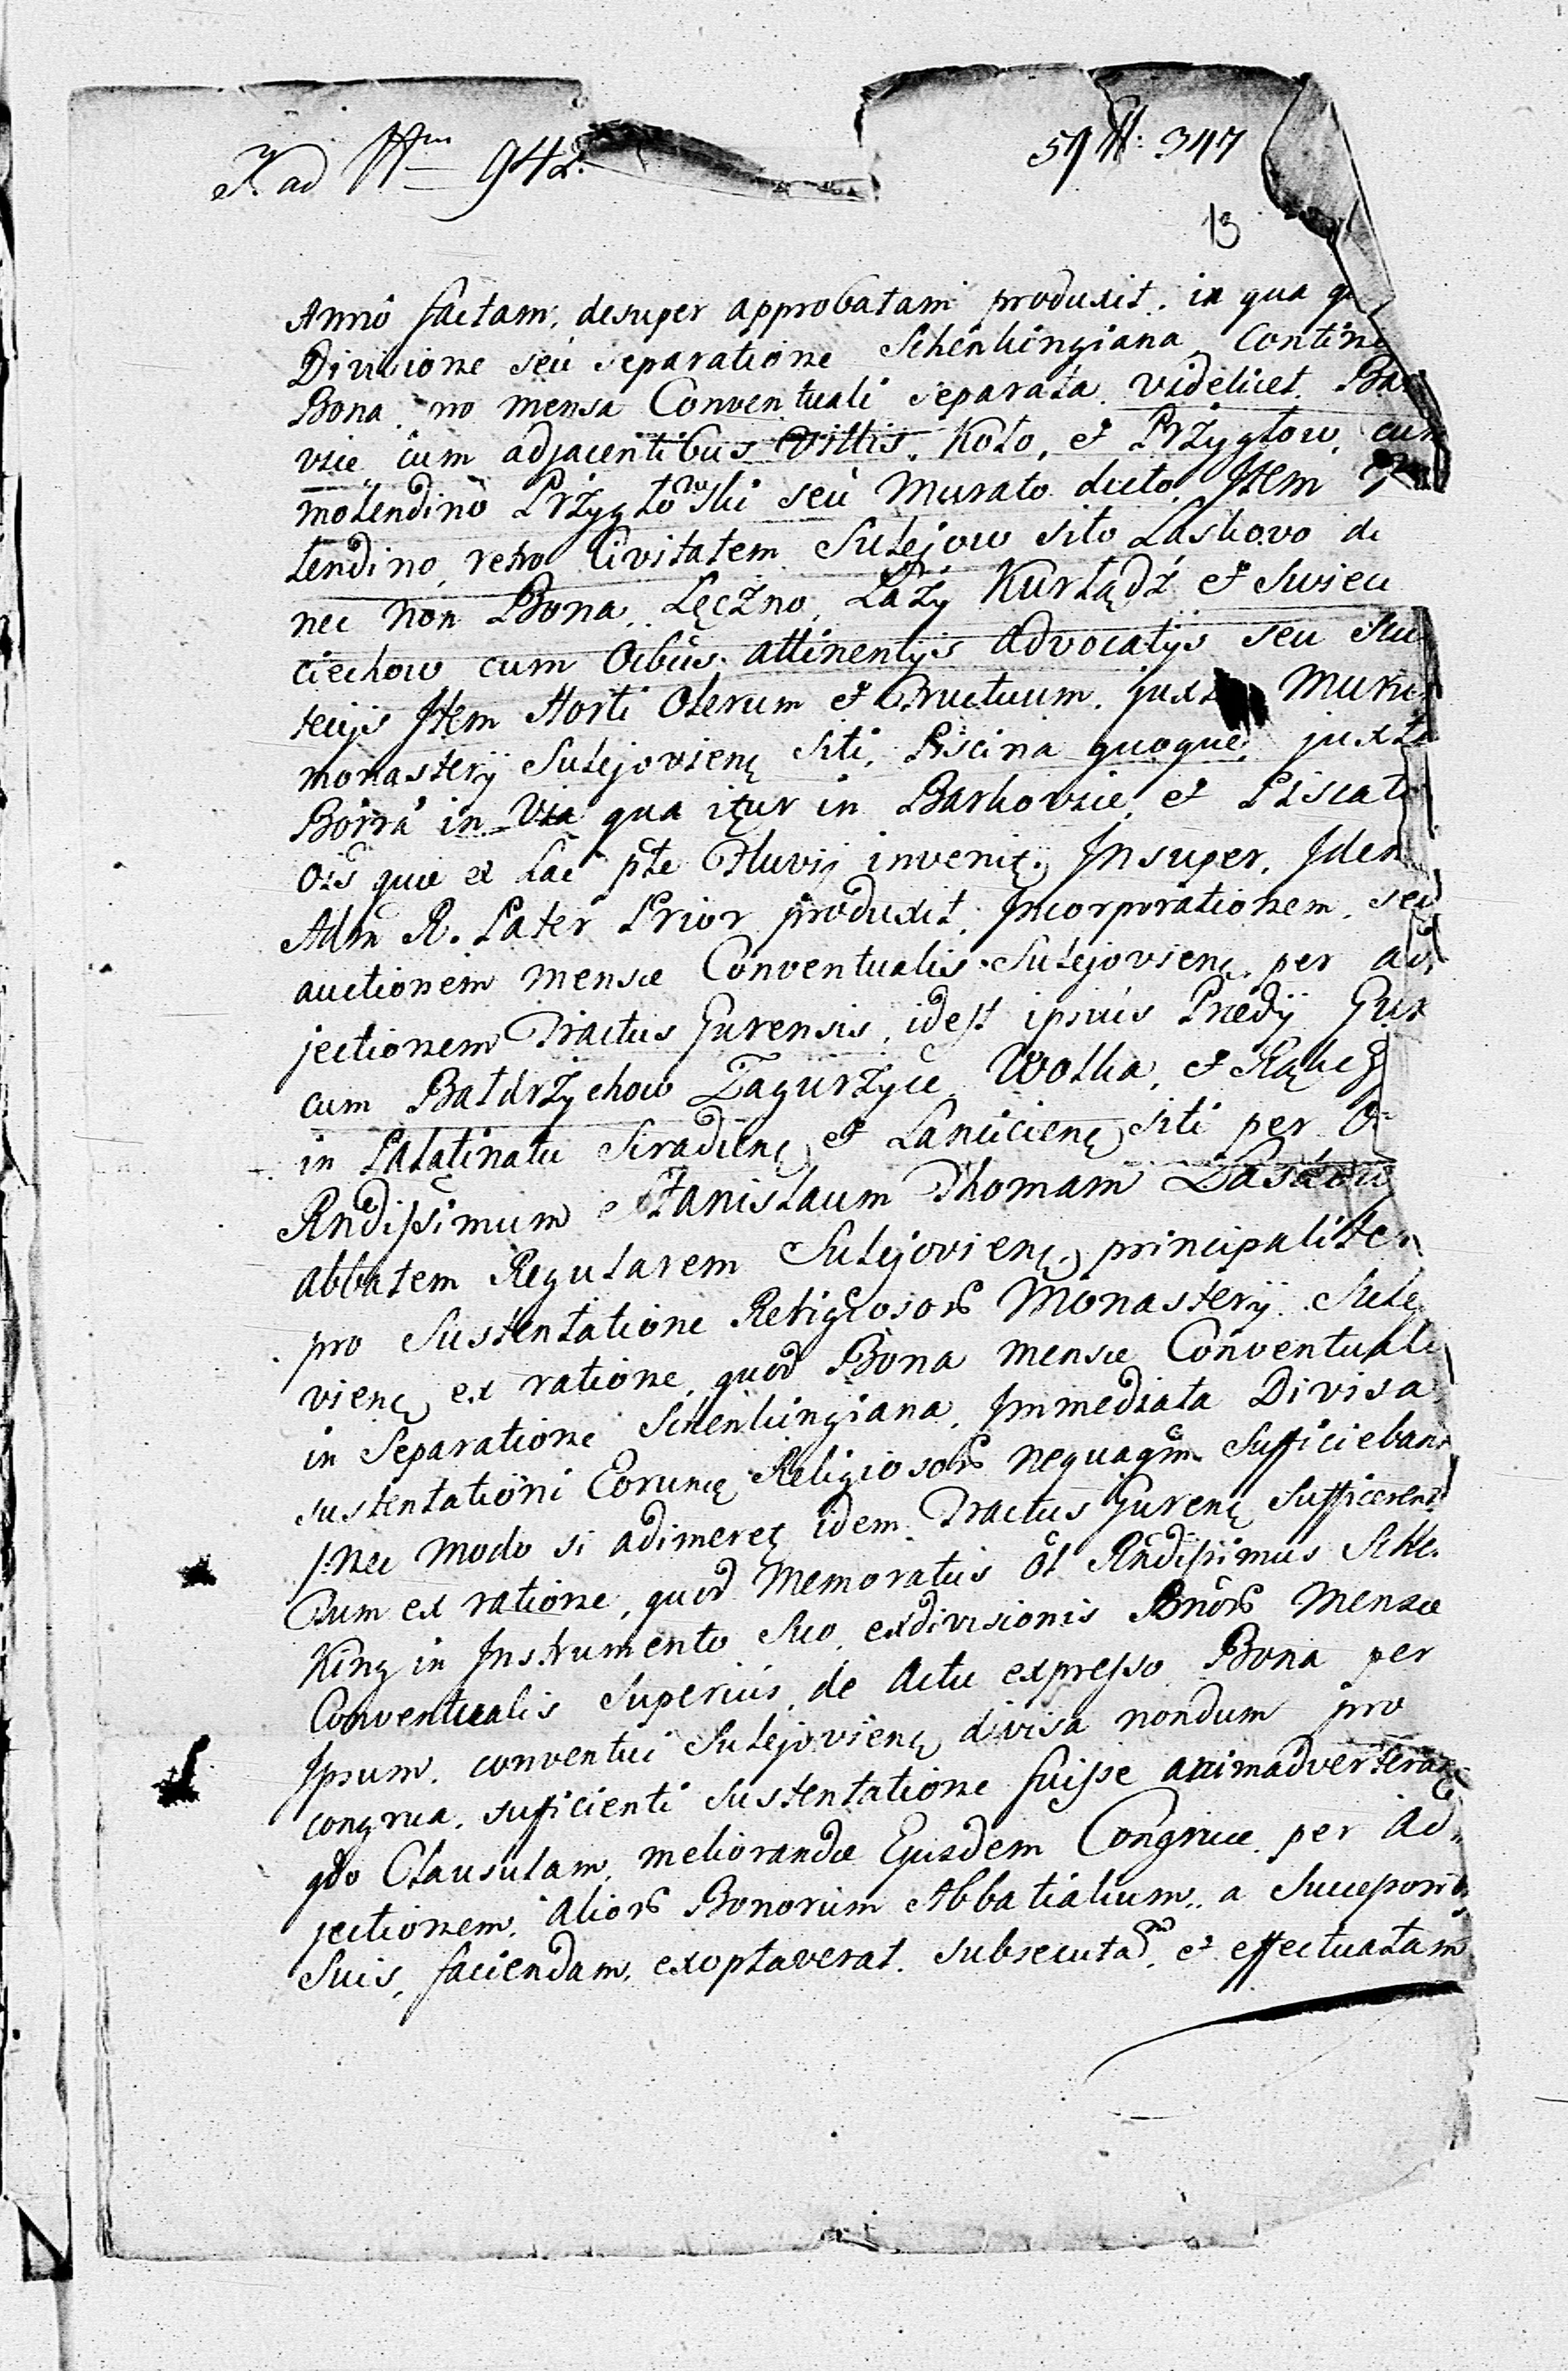 K ad Nrm 942.
59 N: 347
13
Anno factam, desuper approbatam produxit. in qua
Divisione seu separatione Schenkingiana Contine
Bona, no mensa Conventuali separata, videlicet. Bar
vsie cum adjacentibus Villis. Koło, et Przygłow, cum
molendino Przygłowski seu Murato dicto, Item
lendino, retro Civitatem Sulejow sito Laskovo di
nec non Bona, Lęczno, Łazy Kurlądz et Swieu
ciechow cum Oibus attinentijs advocatijs seu Scu
tecijs Item Horti Olerum et Fructuum, juxta Muru
monasterij Sulejovienę Siti, Piscina quoque, juxta
Borra in Via qua itur in Barkovsie, et Piscat
Ois que ex hac pte Fluvij invenię. Insuper, Idem
Adm R. Pater Prior produxit, Incorporationem, seu
auctionem mensæ Conventualis Sulejovienę, per ad,
jectionem Tractus Gurensis, idest ipsius Prædij Gur
cum Bałdrzychow Zagurzyce Wolka, et
in Palatinatu Siradienę et Lancicienę siti per
Rndissimum Stanislaum Thomam
Abbatem Regularem Sulejovienę, principaliter
pro Sustentatione Religiosors Monasterij Sulej
vienę ex ratione, quod Bona mensæ Conventuali
in Separatione Schenkingiana, Immediata Divisa
sustentationi Eorunę Religiosors nequaqm Sufficieban
/:nec modo si adimereę idem Tractus Gurenę Sufficerent
Tum ex ratione, quod Memoratus ol Rndissimus Schen
King in Instrumento Suo, exdivisionis Bnors Mensæ
Conventualis Superius, de Actu expresso Bona per
Ipsum. conventui Sulejovienę divisa nondum pro
congrua, sufficienti sustentatione fuisse animadverterat
qdo Clausulam, meliorandæ Ejusdem Congruæ, per Ad,,
jectionem, aliors Bonorum Abbatialium, a Successoribs
Suis, faciendam, exoptaverat. subsecutam, et effectuatam